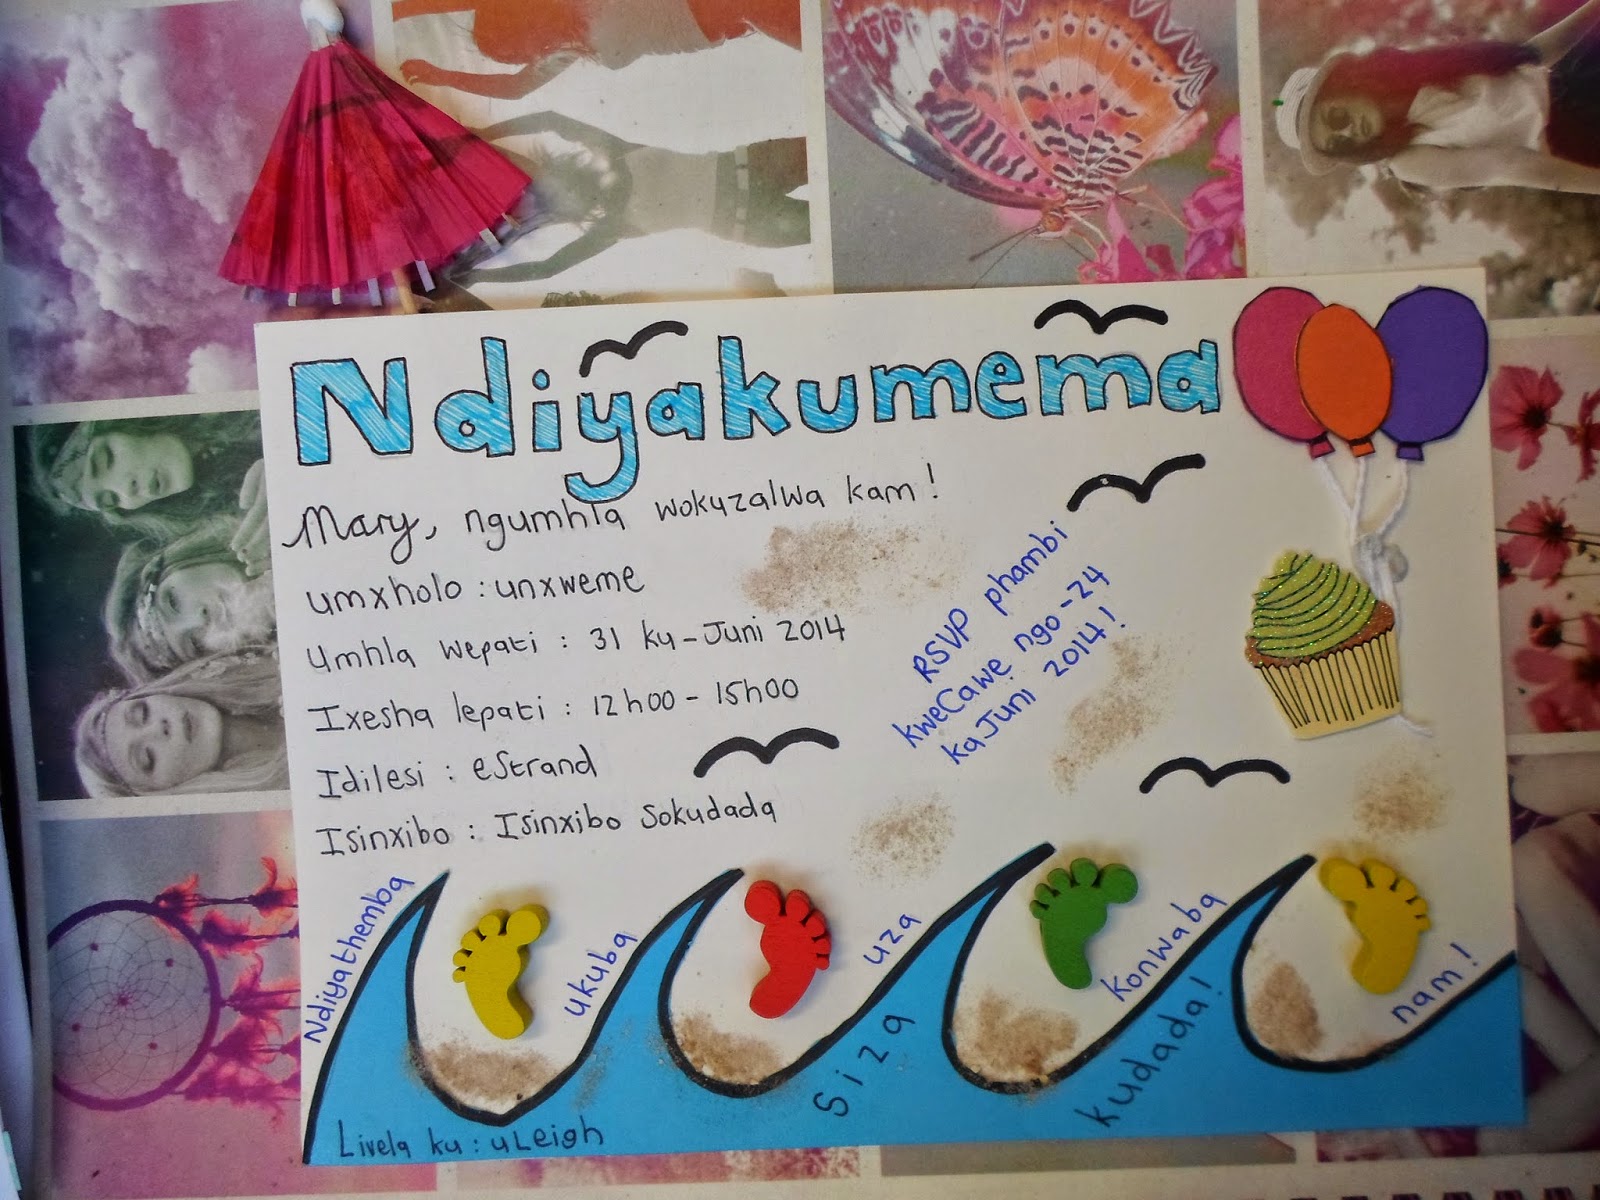 Ndiyakumema
Mary, ngumhla wokuzalwa kam!
umxholo : unxweme
Umhla wepati : 31 ku-Juni 2014
Ixesha lepati : 12h00 - 15h00
Idilesi : eStrand
Isinxibo : Isinxibo Sokudada
RSVP phambi
kweCawe ngo-24
kaJuni 2014!
Ndiyathemba ukuba uza konwaba nam!
Siza kudada!
Livela ku : uLeigh